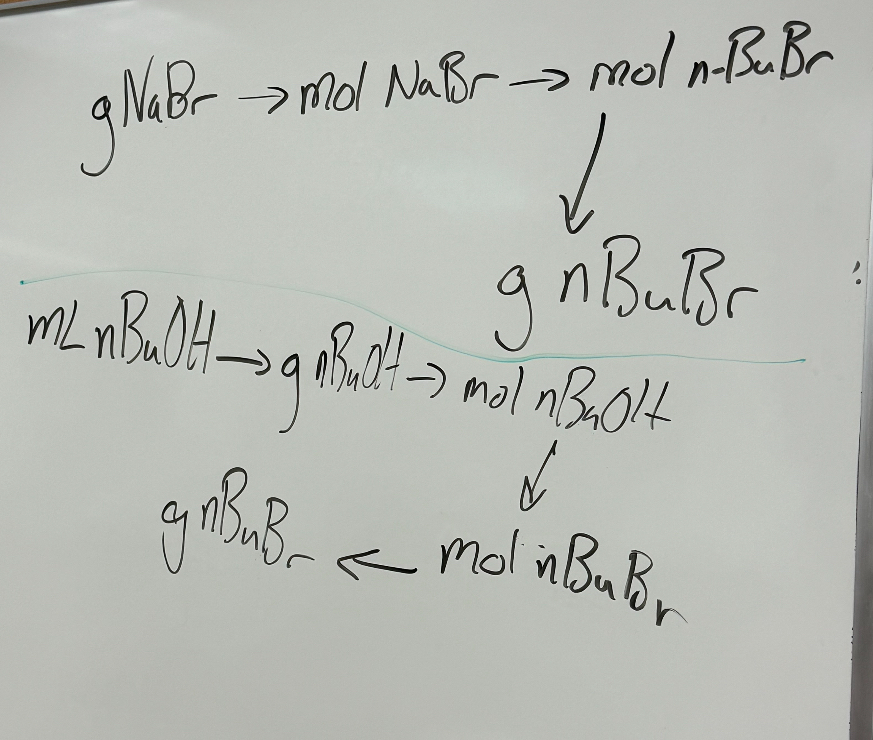 g NaBr → mol NaBr → mol n-BuBr
↓
g nBuBr
mL nBuOH → g nBuOH → mol nBuOH
↓
g nBuBr ← mol nBuBr